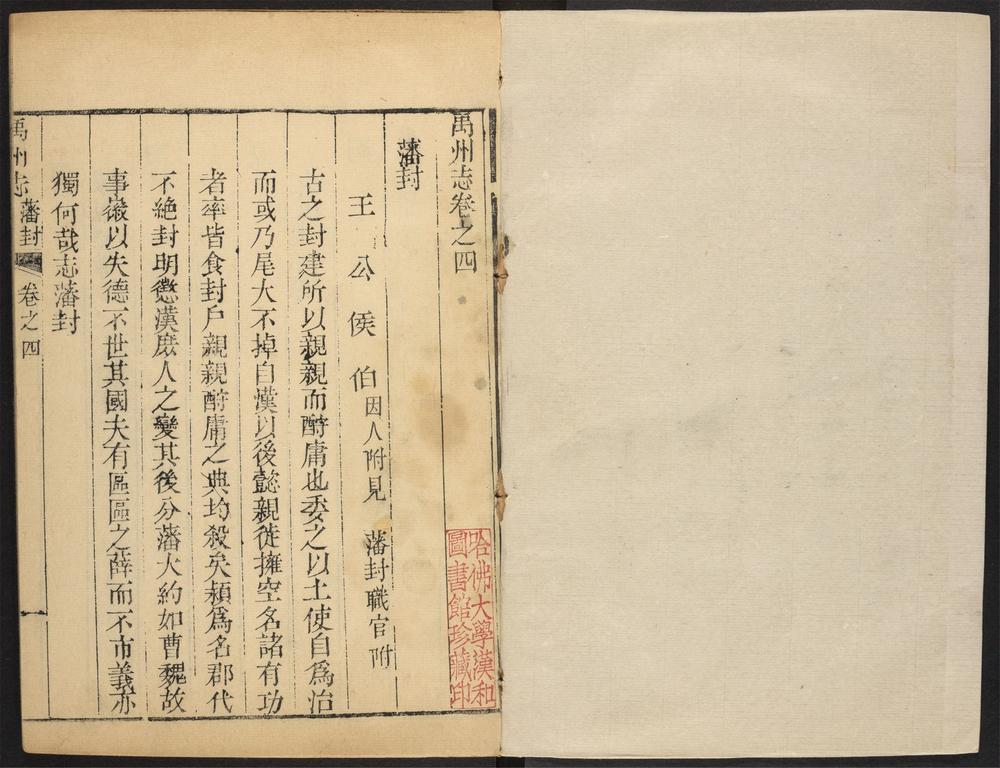 禹州志卷之四
藩封
王公侯伯因人附見 藩封職官附
古之封建所以親親而酧庸也委之以土使自爲治
而或乃尾大不掉自漢以後懿親徒擁空名諸有功
者率皆食封戶親親酧庸之典均殺矣潁爲名郡代
不絶封明懲漢庶人之變其後分藩大約如曹魏故
事嚴以失德不世其國夫有區區之薛而不市義亦
獨何哉志藩封
禹州志 藩封 卷之四 一
哈佛大學漢和
圖書館珍藏印